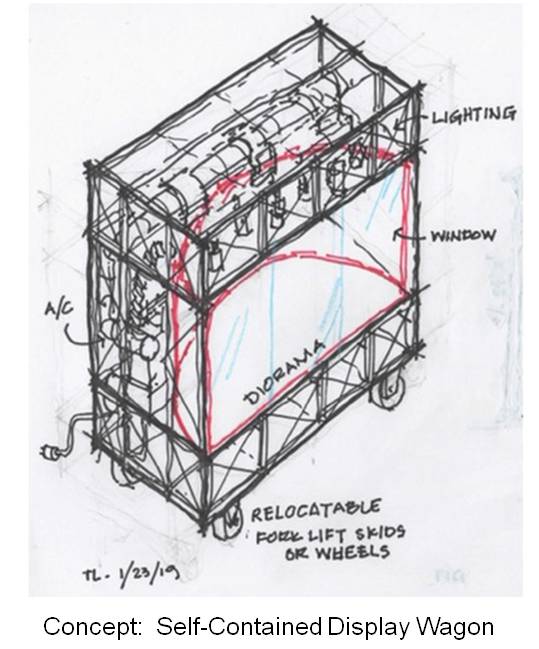 LIGHTING
WINDOW
A/C
DIORAMA
RELOCATABLE
FORK LIFT SKIDS
OR WHEELS
TL. 1/23/19
Concept:  Self-Contained Display Wagon